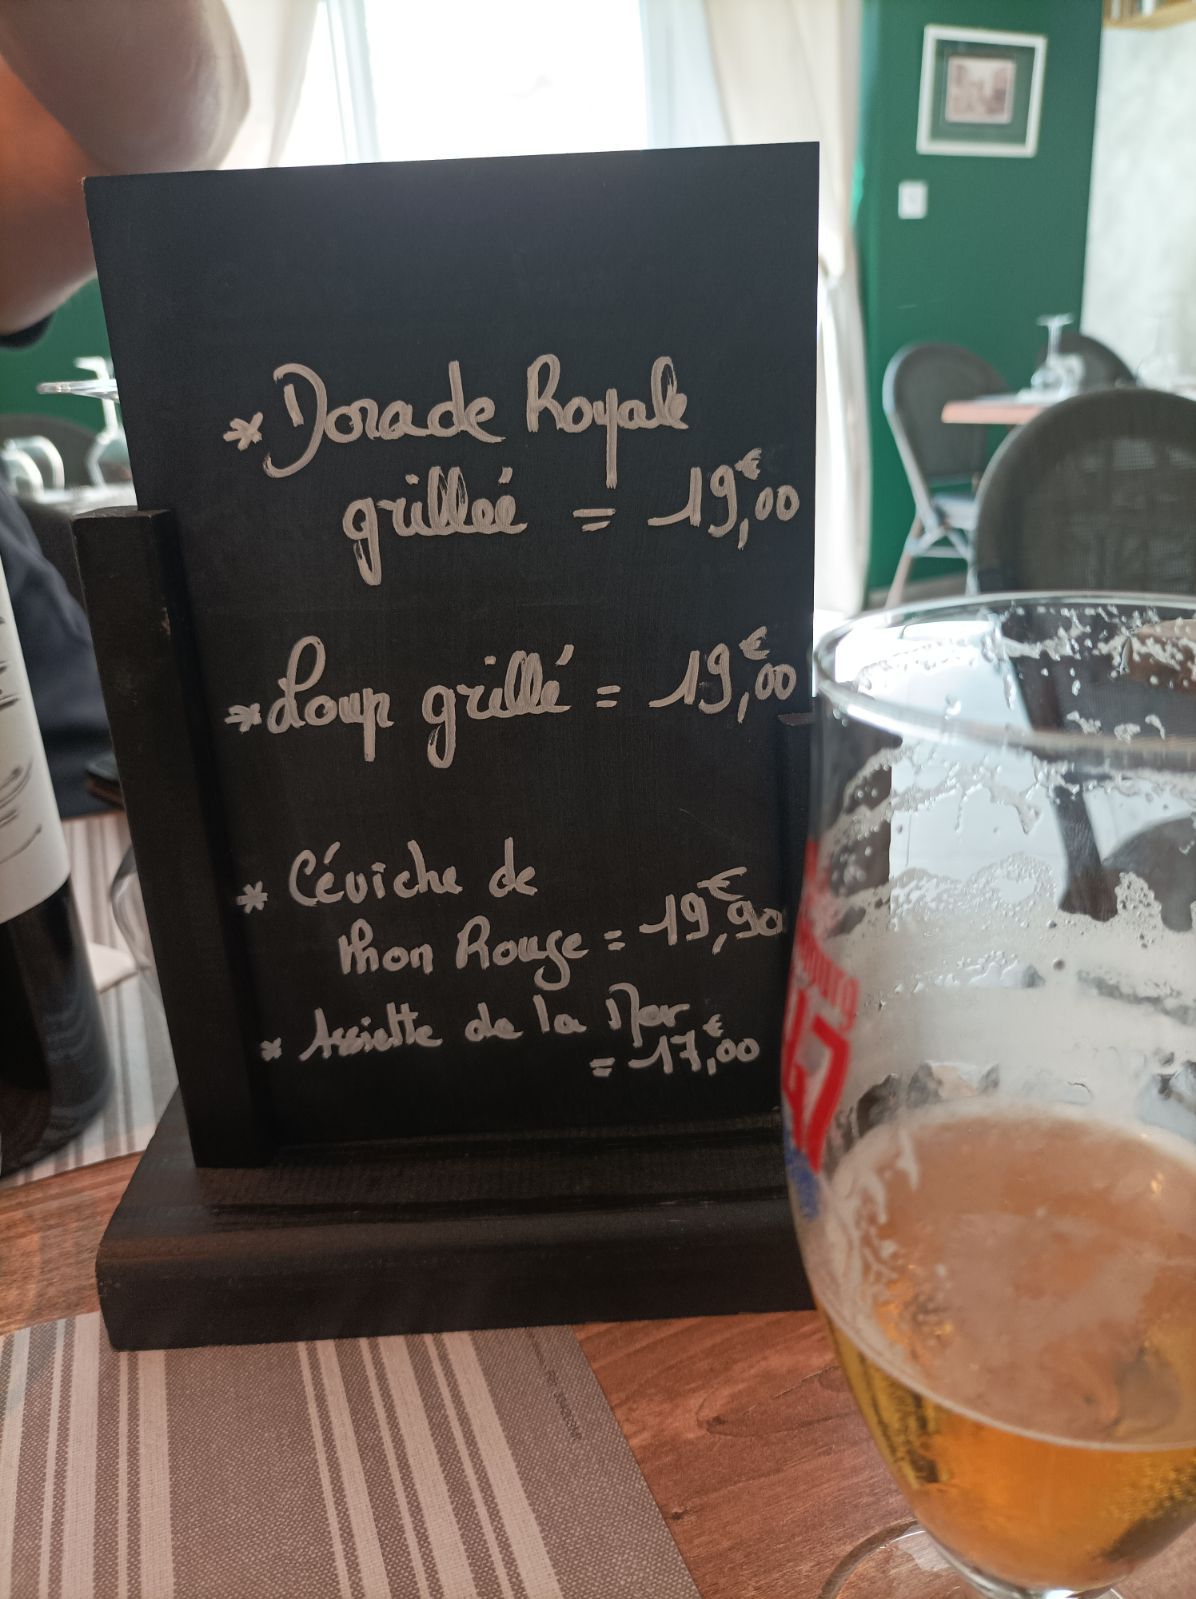 * Dorade Royale
grilleé = 19,00€
* Loup grillé = 19,00€
* Céviche de
thon Rouge = 19,90€
* Assiette de la Mer
= 17,00€